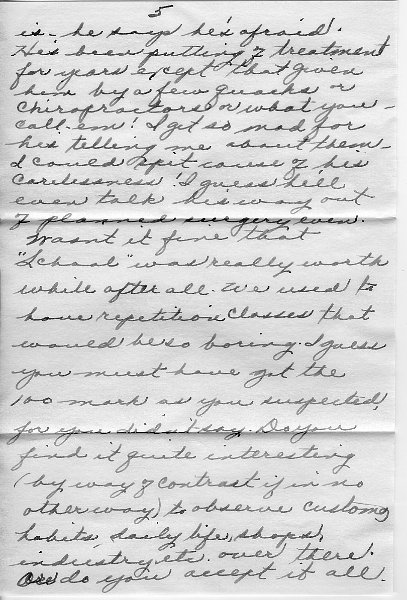 5
is - he says he's afraid!
He's been putting of treatment
for years except that given
him by a few quacks or
Chiropractors or what you -
call-em! I get so mad for
his telling me about them -
I could spit cause of his
carelessness! I guess he'll
even talk his way out
of planned surgery even.
Wasn't it fine that
"School" was really worth
while after all. We used to
have repetition classes that
would be so boring. I guess
you must have got the
100 mark as you suspected,
for you didn't say. Do you
find it quite interesting
(by way of contrast if in no
other way) to observe customs
habits, daily life, shops,
industry, etc. over there.
do you accept it all.